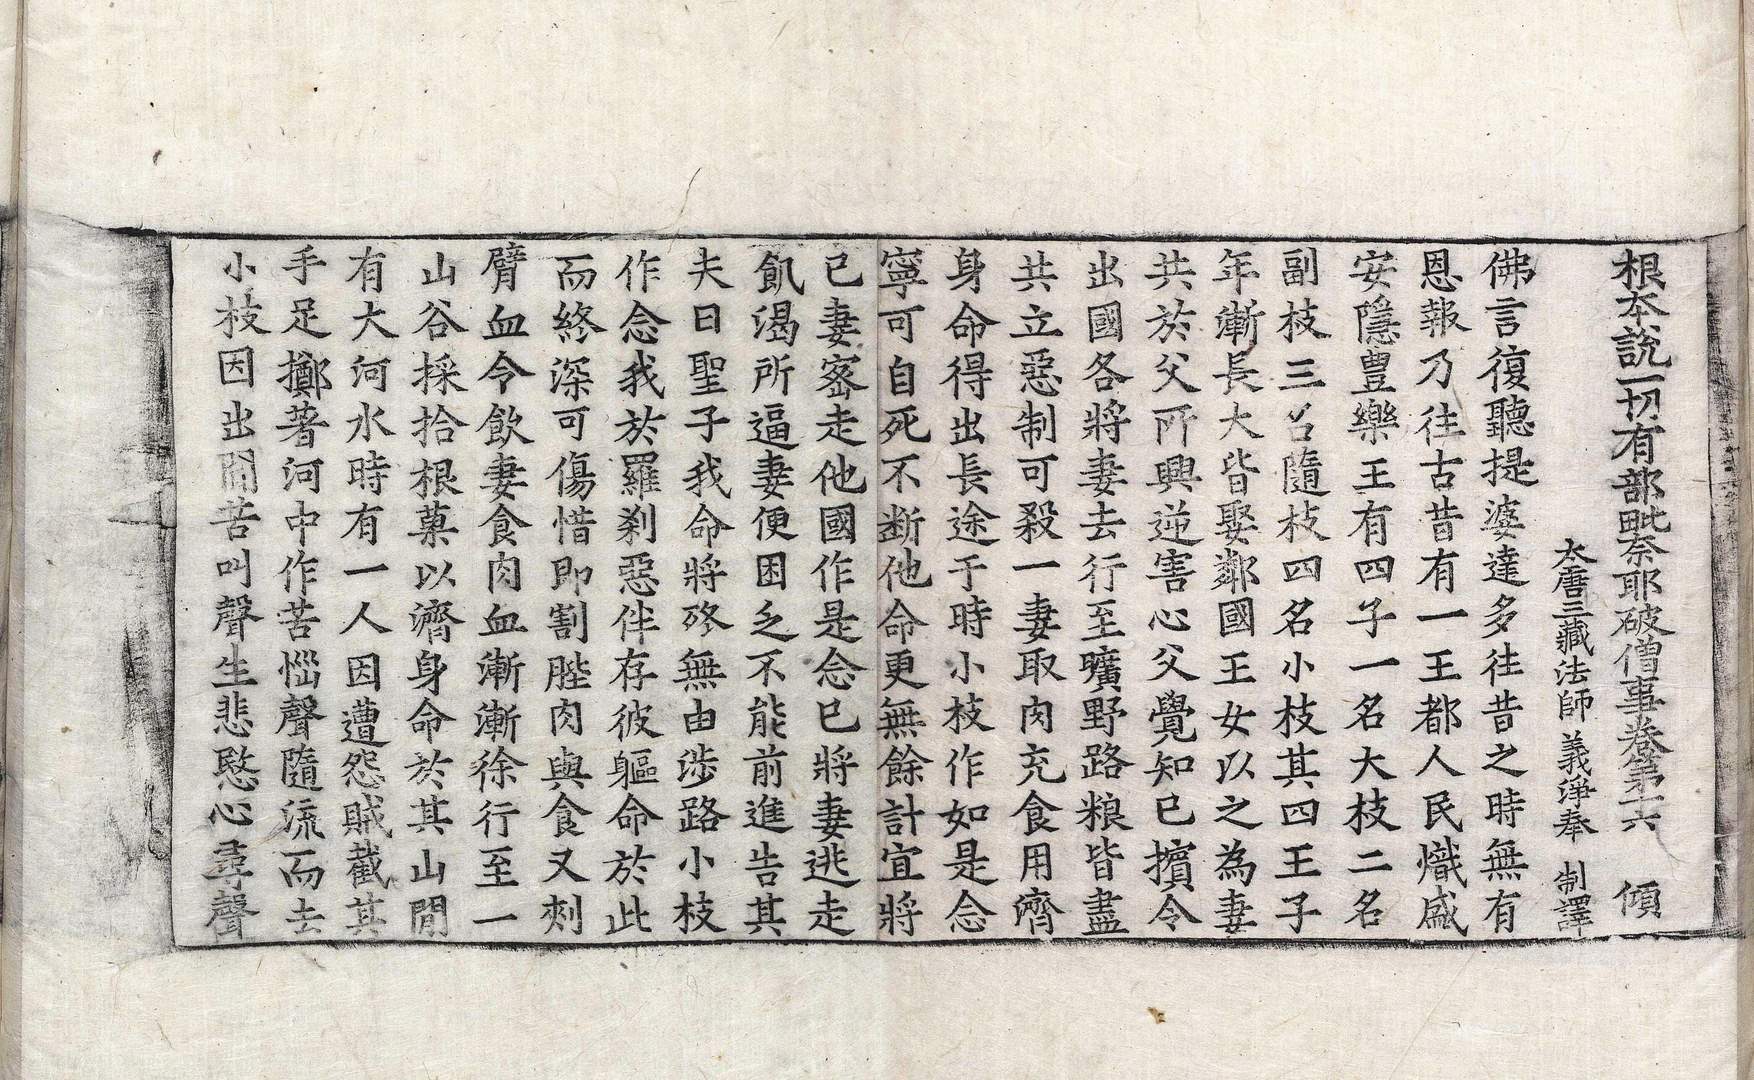 根本說一切有部毗奈耶破僧事卷第十六 傾
大唐三藏法師 義淨奉 制譯
佛言復聽提婆達多往昔之時無有
恩報乃往古昔有一王都人民熾盛
安隱豊樂王有四子一名大枝二名
副枝三名隨枝四名小枝其四王子
年漸長大皆娶鄰國王女以之為妻
共於父所興逆害心父覺知已擯令
出國各將妻去行至曠野路粮皆盡
共立惡制可殺一妻取肉充食用濟
身命得出長途于時小枝作如是念
寧可自死不断他命更無餘計宜將
己妻密走他國作是念已將妻逃走
飢渴所逼妻便困乏不能前進告其
夫曰聖子我命將殄無由涉路小枝
作念我於羅刹惡伴存彼軀命於此
而終深可傷惜即割䏶肉與食又刺
臂血令飲妻食肉血漸漸徐行至一
山谷採拾根菓以濟身命於其山閒
有大河水時有一人因遭怨賊截其
手足擲著河中作苦惱聲隨流而去
小枝因出聞苦叫聲生悲愍心尋聲